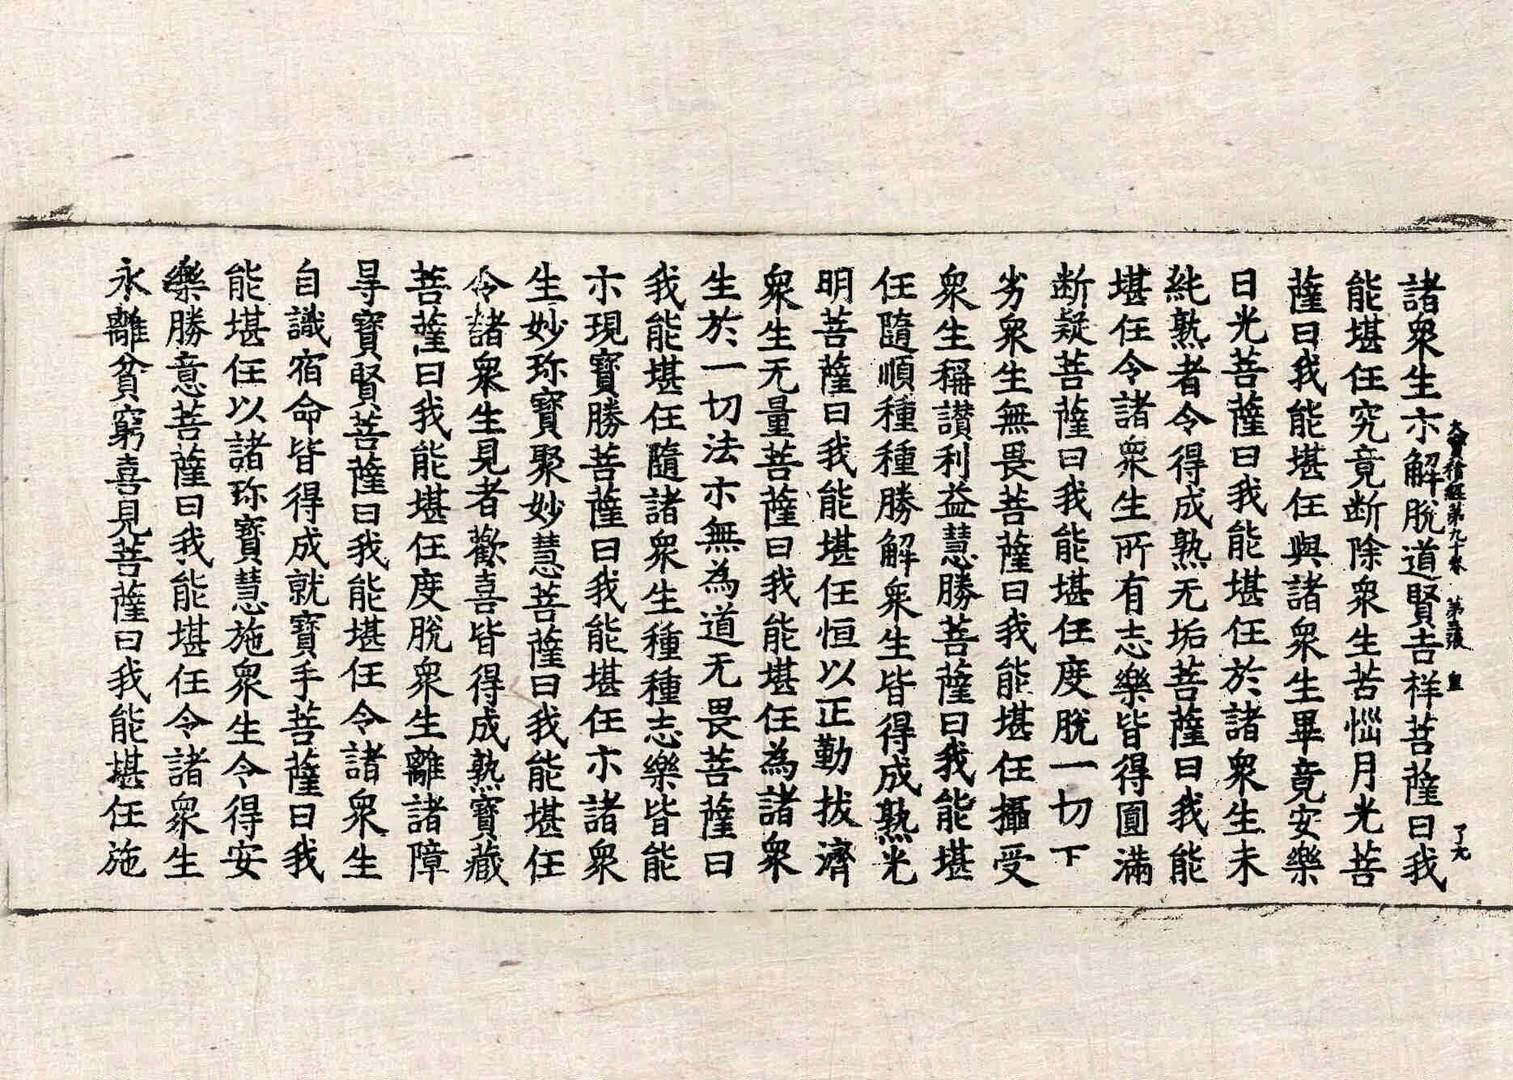 大寶積經第九十卷　第五張　皇　了九
諸衆生尒解脫道賢吉祥菩薩曰我
能堪任究竟断除衆生苦惱月光菩
薩曰我能堪任與諸衆生畢竟安樂
日光菩薩曰我能堪任於諸衆生未
純熟者令得成熟无垢菩薩曰我能
堪任令諸衆生所有志樂皆得圓滿
断疑菩薩曰我能堪任度脫一切下
劣衆生無畏菩薩曰我能堪任攝受
衆生稱讃利益慧勝菩薩曰我能堪
任隨順種種勝解衆生皆得成熟光
明菩薩曰我能堪任恒以正勤拔濟
衆生无量菩薩曰我能堪任為諸衆
生於一切法尒無為道无畏菩薩曰
我能堪任隨諸衆生種種志樂皆能
尒現寶勝菩薩曰我能堪任尒諸衆
生妙珎寶聚妙慧菩薩曰我能堪任
令諸衆生見者歡喜皆得成熟寶藏
菩薩曰我能堪任度脫衆生離諸障
㝵寶賢菩薩曰我能堪任令諸衆生
自識宿命皆得成就寶手菩薩曰我
能堪任以諸珎寶慧施衆生令得安
樂勝意菩薩曰我能堪任令諸衆生
永離貧窮喜見菩薩曰我能堪任施